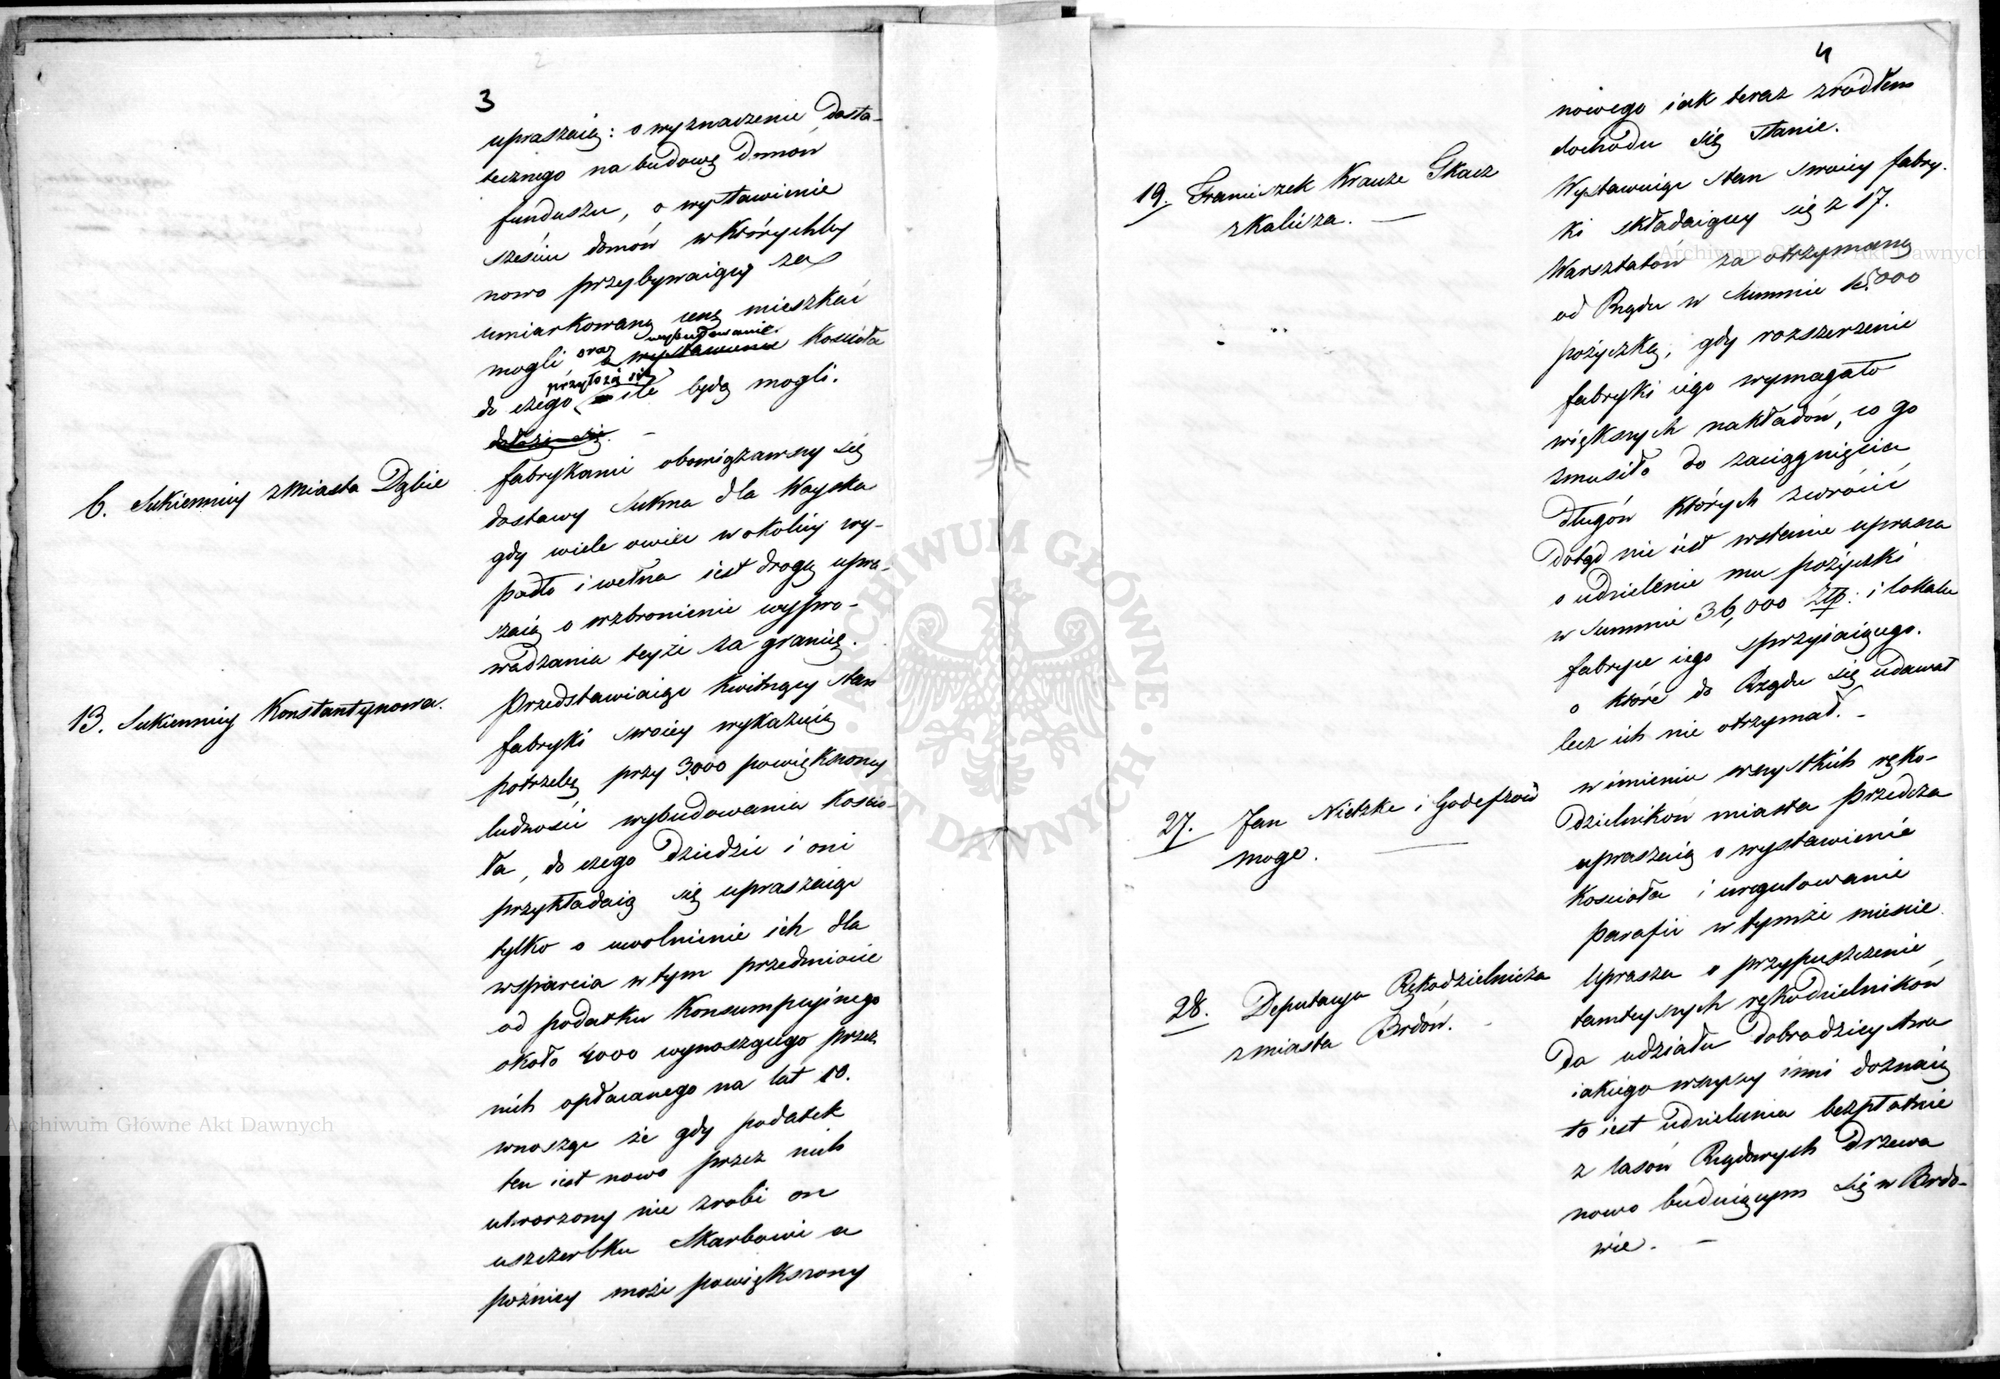 3
upraszaią: o wyznaczenie dosta-
tecznego na budowę domów
funduszu, o wystawienie
sześciu domów w którychby
nowo przybywaiący za
umiarkowaną cenę mieszkać
mogli oraz wybudowanie Kościoła
do czego przyłożą się ile będą mogli.
6. Sukiennicy z Miasta Dąbie
fabrykanci obowiązawszy się
dostawy Sukna dla Woyska
gdy wiele owiec w okolicy wy-
padło i wełna iest drogą upra-
szaią o wzbronienie wypro-
wadzania teyże za granicę.
13. Sukiennicy Konstantynowa.
Przedstawiaiąc kwitnący stan
fabryki swoiey wykazuią
potrzebę przy 3000 powiększoney
ludności wybudowania Kościo-
ła, do czego Dziedzic i oni
przykładaią się upraszaiąc
tylko o uwolnienie ich dla
wsparcia w tym przedmiocie
od podatku Konsumpcyinego
około 4000 wynoszącego przez
nich opłacanego na lat 10.
wnosząc że gdy podatek
ten iest nowo przez nich
utworzony nie zrobi on
uszczerbku Skarbowi a
pożniey może powiększony
4
nowego iak teraz źródłem
dochodu się stanie.
19. Franciszek Krauze Tkacz
z Kalisza. —
Wystawuiąc stan swoiey fabry-
ki składaiącey się z 17.
Warsztatów za otrzymaną
od Rządu w Summie 15.000
pożyczkę, gdy rozszerzenie
fabryki iego wymagało
większych nakładów, co go
zmusiło do zaciągnięcia
długów których zwrócić
dotąd nie iest wstanie uprasza
o udzielenie mu pożyczki
w Summie 36,000 Złp: i lokalu
fabryce iego sprzyiaiącego.
o które do Rządu się udawał
lecz ich nie otrzymał. —
27. Jan Nietzke i Godefroid
Moge. —
w imieniu wszystkich ręko-
dzielników miasta Przedcza
upraszaią o wystawienie
Kościoła i uregulowanie
Parafii w tymże mieście.
28. Deputacya Rękodzielnicza
z miasta Brdów. -
Uprasza o przypuszczenie
tamteyszych rękodzielników
do udziału dobrodzieystwa
iakiego wszyscy inni doznaią
to iest udzielenia bezpłatnie
z lasów Rządowych Drzewa
nowo buduiącym się w Brdo-
wie. —
Archiwum Główne Akt Dawnych
Archiwum Główne Akt Dawnych
ARCHIWUM GŁÓWNE AKT DAWNYCH